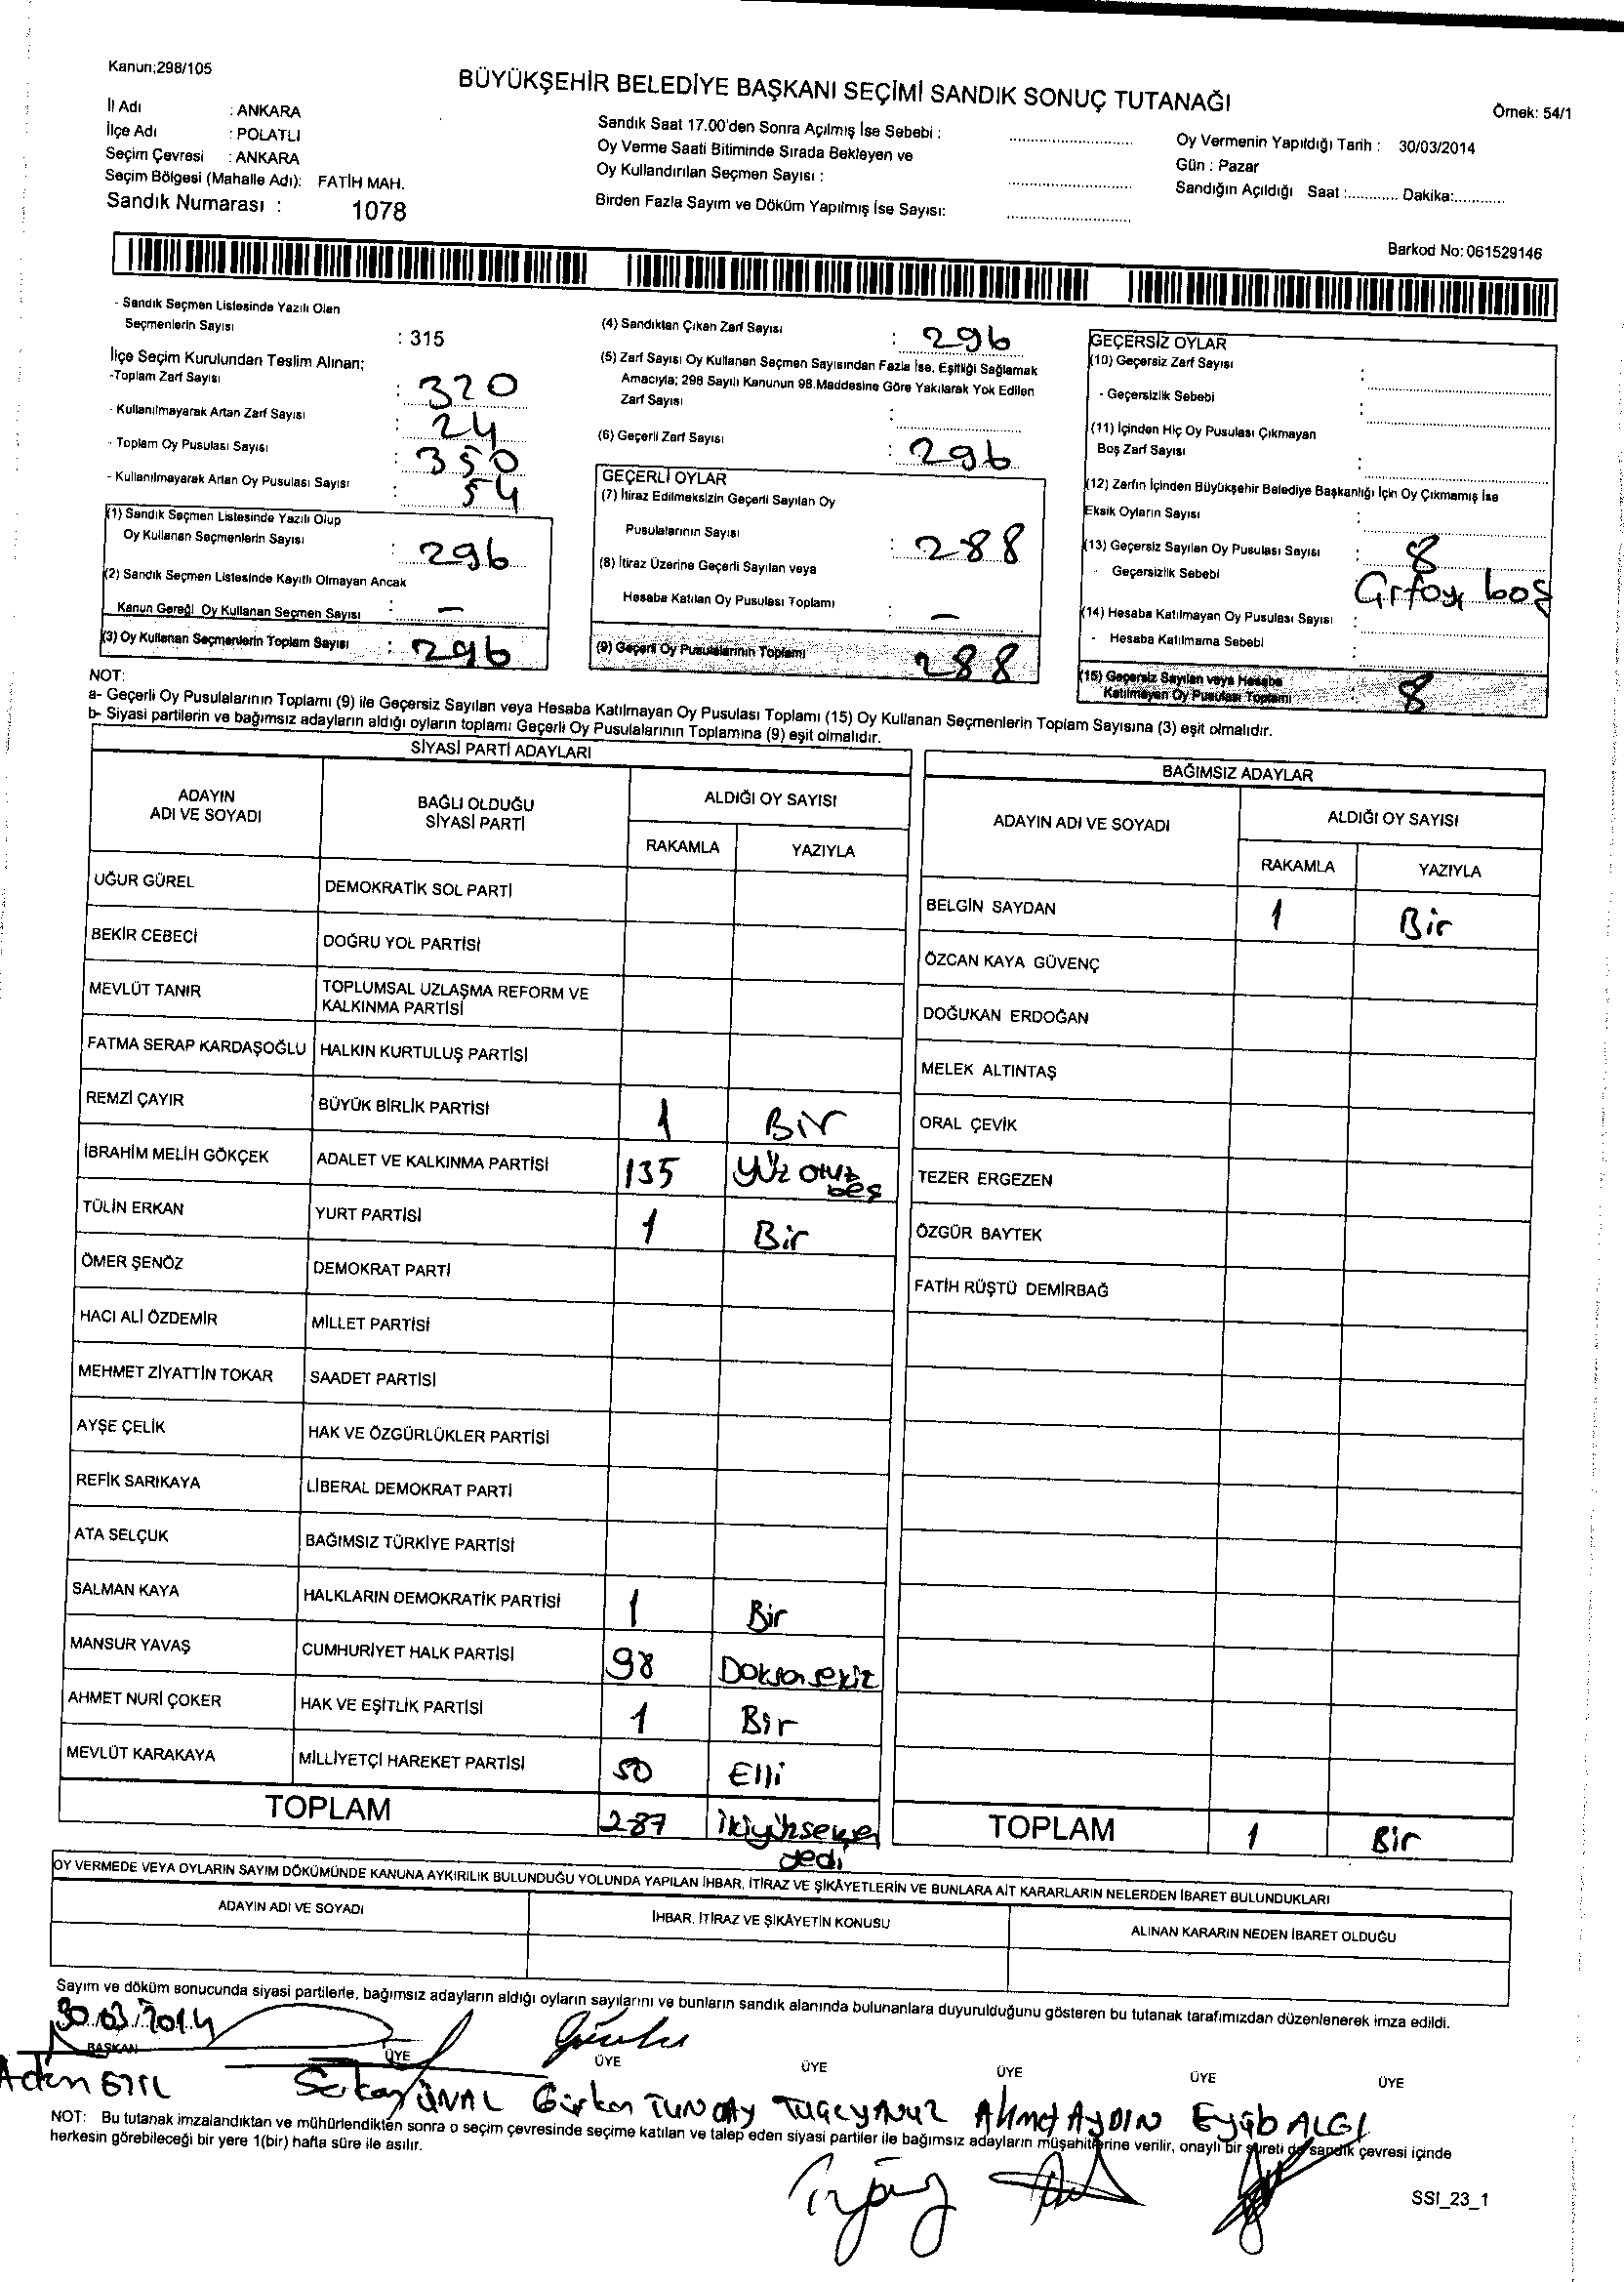 Kanun;298/105
BÜYÜKŞEHİR BELEDİYE BAŞKANI SEÇİMİ SANDIK SONUÇ TUTANAĞI
Örnek: 54/1
İl Adı : ANKARA
İlçe Adı : POLATLI
Seçim Çevresi : ANKARA
Seçim Bölgesi (Mahalle Adı): FATİH MAH.
Sandık Numarası : 1078
Sandık Saat 17.00'den Sonra Açılmış İse Sebebi :
Oy Verme Saati Bitiminde Sırada Bekleyen ve
Oy Kullandırılan Seçmen Sayısı :
Birden Fazla Sayım ve Döküm Yapılmış İse Sayısı:
Oy Vermenin Yapıldığı Tarih : 30/03/2014
Gün : Pazar
Sandığın Açıldığı Saat :............. Dakika:............
Barkod No: 061529146
- Sandık Seçmen Listesinde Yazılı Olan
Seçmenlerin Sayısı : 315
İlçe Seçim Kurulundan Teslim Alınan;
-Toplam Zarf Sayısı : 320
- Kullanılmayarak Artan Zarf Sayısı : 24
- Toplam Oy Pusulası Sayısı : 350
- Kullanılmayarak Artan Oy Pusulası Sayısı : 54
(1) Sandık Seçmen Listesinde Yazılı Olup
Oy Kullanan Seçmenlerin Sayısı : 296
(2) Sandık Seçmen Listesinde Kayıtlı Olmayan Ancak
Kanun Gereği Oy Kullanan Seçmen Sayısı : –
(3) Oy Kullanan Seçmenlerin Toplam Sayısı : 296
(4) Sandıktan Çıkan Zarf Sayısı : 296
(5) Zarf Sayısı Oy Kullanan Seçmen Sayısından Fazla İse, Eşitliği Sağlamak
Amacıyla; 298 Sayılı Kanunun 98.Maddesine Göre Yakılarak Yok Edilen
Zarf Sayısı :
(6) Geçerli Zarf Sayısı : 296
GEÇERLİ OYLAR
(7) İtiraz Edilmeksizin Geçerli Sayılan Oy
Pusulalarının Sayısı : 288
(8) İtiraz Üzerine Geçerli Sayılan veya
Hesaba Katılan Oy Pusulası Toplamı : –
(9) Geçerli Oy Pusulalarının Toplamı 288
GEÇERSİZ OYLAR
(10) Geçersiz Zarf Sayısı :
- Geçersizlik Sebebi :
(11) İçinden Hiç Oy Pusulası Çıkmayan
Boş Zarf Sayısı :
(12) Zarfın İçinden Büyükşehir Belediye Başkanlığı İçin Oy Çıkmamış İse
Eksik Oyların Sayısı :
(13) Geçersiz Sayılan Oy Pusulası Sayısı : 8
- Geçersizlik Sebebi boş
(14) Hesaba Katılmayan Oy Pusulası Sayısı :
- Hesaba Katılmama Sebebi :
(15) Geçersiz Sayılan veya Hesaba
Katılmayan Oy Pusulası Toplamı : 8
NOT:
a- Geçerli Oy Pusulalarının Toplamı (9) ile Geçersiz Sayılan veya Hesaba Katılmayan Oy Pusulası Toplamı (15) Oy Kullanan Seçmenlerin Toplam Sayısına (3) eşit olmalıdır.
b- Siyasi partilerin ve bağımsız adayların aldığı oyların toplamı Geçerli Oy Pusulalarının Toplamına (9) eşit olmalıdır.
SİYASİ PARTİ ADAYLARI
ADAYIN ADI VE SOYADI BAĞLI OLDUĞU SİYASİ PARTİ ALDIĞI OY SAYISI
RAKAMLA YAZIYLA
UĞUR GÜREL DEMOKRATİK SOL PARTİ
BEKİR CEBECİ DOĞRU YOL PARTİSİ
MEVLÜT TANIR TOPLUMSAL UZLAŞMA REFORM VE
KALKINMA PARTİSİ
FATMA SERAP KARDAŞOĞLU HALKIN KURTULUŞ PARTİSİ
REMZİ ÇAYIR BÜYÜK BİRLİK PARTİSİ 1 Bir
İBRAHİM MELİH GÖKÇEK ADALET VE KALKINMA PARTİSİ 135 yüz otuz
beş
TÜLİN ERKAN YURT PARTİSİ 1 Bir
ÖMER ŞENÖZ DEMOKRAT PARTİ
HACI ALİ ÖZDEMİR MİLLET PARTİSİ
MEHMET ZİYATTİN TOKAR SAADET PARTİSİ
AYŞE ÇELİK HAK VE ÖZGÜRLÜKLER PARTİSİ
REFİK SARIKAYA LİBERAL DEMOKRAT PARTİ
ATA SELÇUK BAĞIMSIZ TÜRKİYE PARTİSİ
SALMAN KAYA HALKLARIN DEMOKRATİK PARTİSİ 1 Bir
MANSUR YAVAŞ CUMHURİYET HALK PARTİSİ 98 Doksansekiz
AHMET NURİ ÇOKER HAK VE EŞİTLİK PARTİSİ 1 Bir
MEVLÜT KARAKAYA MİLLİYETÇİ HAREKET PARTİSİ 50 Elli
TOPLAM 287 ikiyüzseksen
yedi
BAĞIMSIZ ADAYLAR
ADAYIN ADI VE SOYADI ALDIĞI OY SAYISI
RAKAMLA YAZIYLA
BELGİN SAYDAN 1 Bir
ÖZCAN KAYA GÜVENÇ
DOĞUKAN ERDOĞAN
MELEK ALTINTAŞ
ORAL ÇEVİK
TEZER ERGEZEN
ÖZGÜR BAYTEK
FATİH RÜŞTÜ DEMİRBAĞ
TOPLAM 1 Bir
OY VERMEDE VEYA OYLARIN SAYIM DÖKÜMÜNDE KANUNA AYKIRILIK BULUNDUĞU YOLUNDA YAPILAN İHBAR, İTİRAZ VE ŞİKÂYETLERİN VE BUNLARA AİT KARARLARIN NELERDEN İBARET BULUNDUKLARI
ADAYIN ADI VE SOYADI İHBAR, İTİRAZ VE ŞİKÂYETİN KONUSU ALINAN KARARIN NEDEN İBARET OLDUĞU
Sayım ve döküm sonucunda siyasi partilerle, bağımsız adayların aldığı oyların sayılarını ve bunların sandık alanında bulunanlara duyurulduğunu gösteren bu tutanak tarafımızdan düzenlenerek imza edildi.
30.03.2014
BAŞKAN ÜYE ÜYE ÜYE ÜYE ÜYE ÜYE
Serkay ÜNAL Gürkan TUNCAY Ahmet AYDIN Eyüb ALGI
NOT: Bu tutanak imzalandıktan ve mühürlendikten sonra o seçim çevresinde seçime katılan ve talep eden siyasi partiler ile bağımsız adayların müşahitlerine verilir, onaylı bir sureti de sandık çevresi içinde
herkesin görebileceği bir yere 1(bir) hafta süre ile asılır.
SSI_23_1